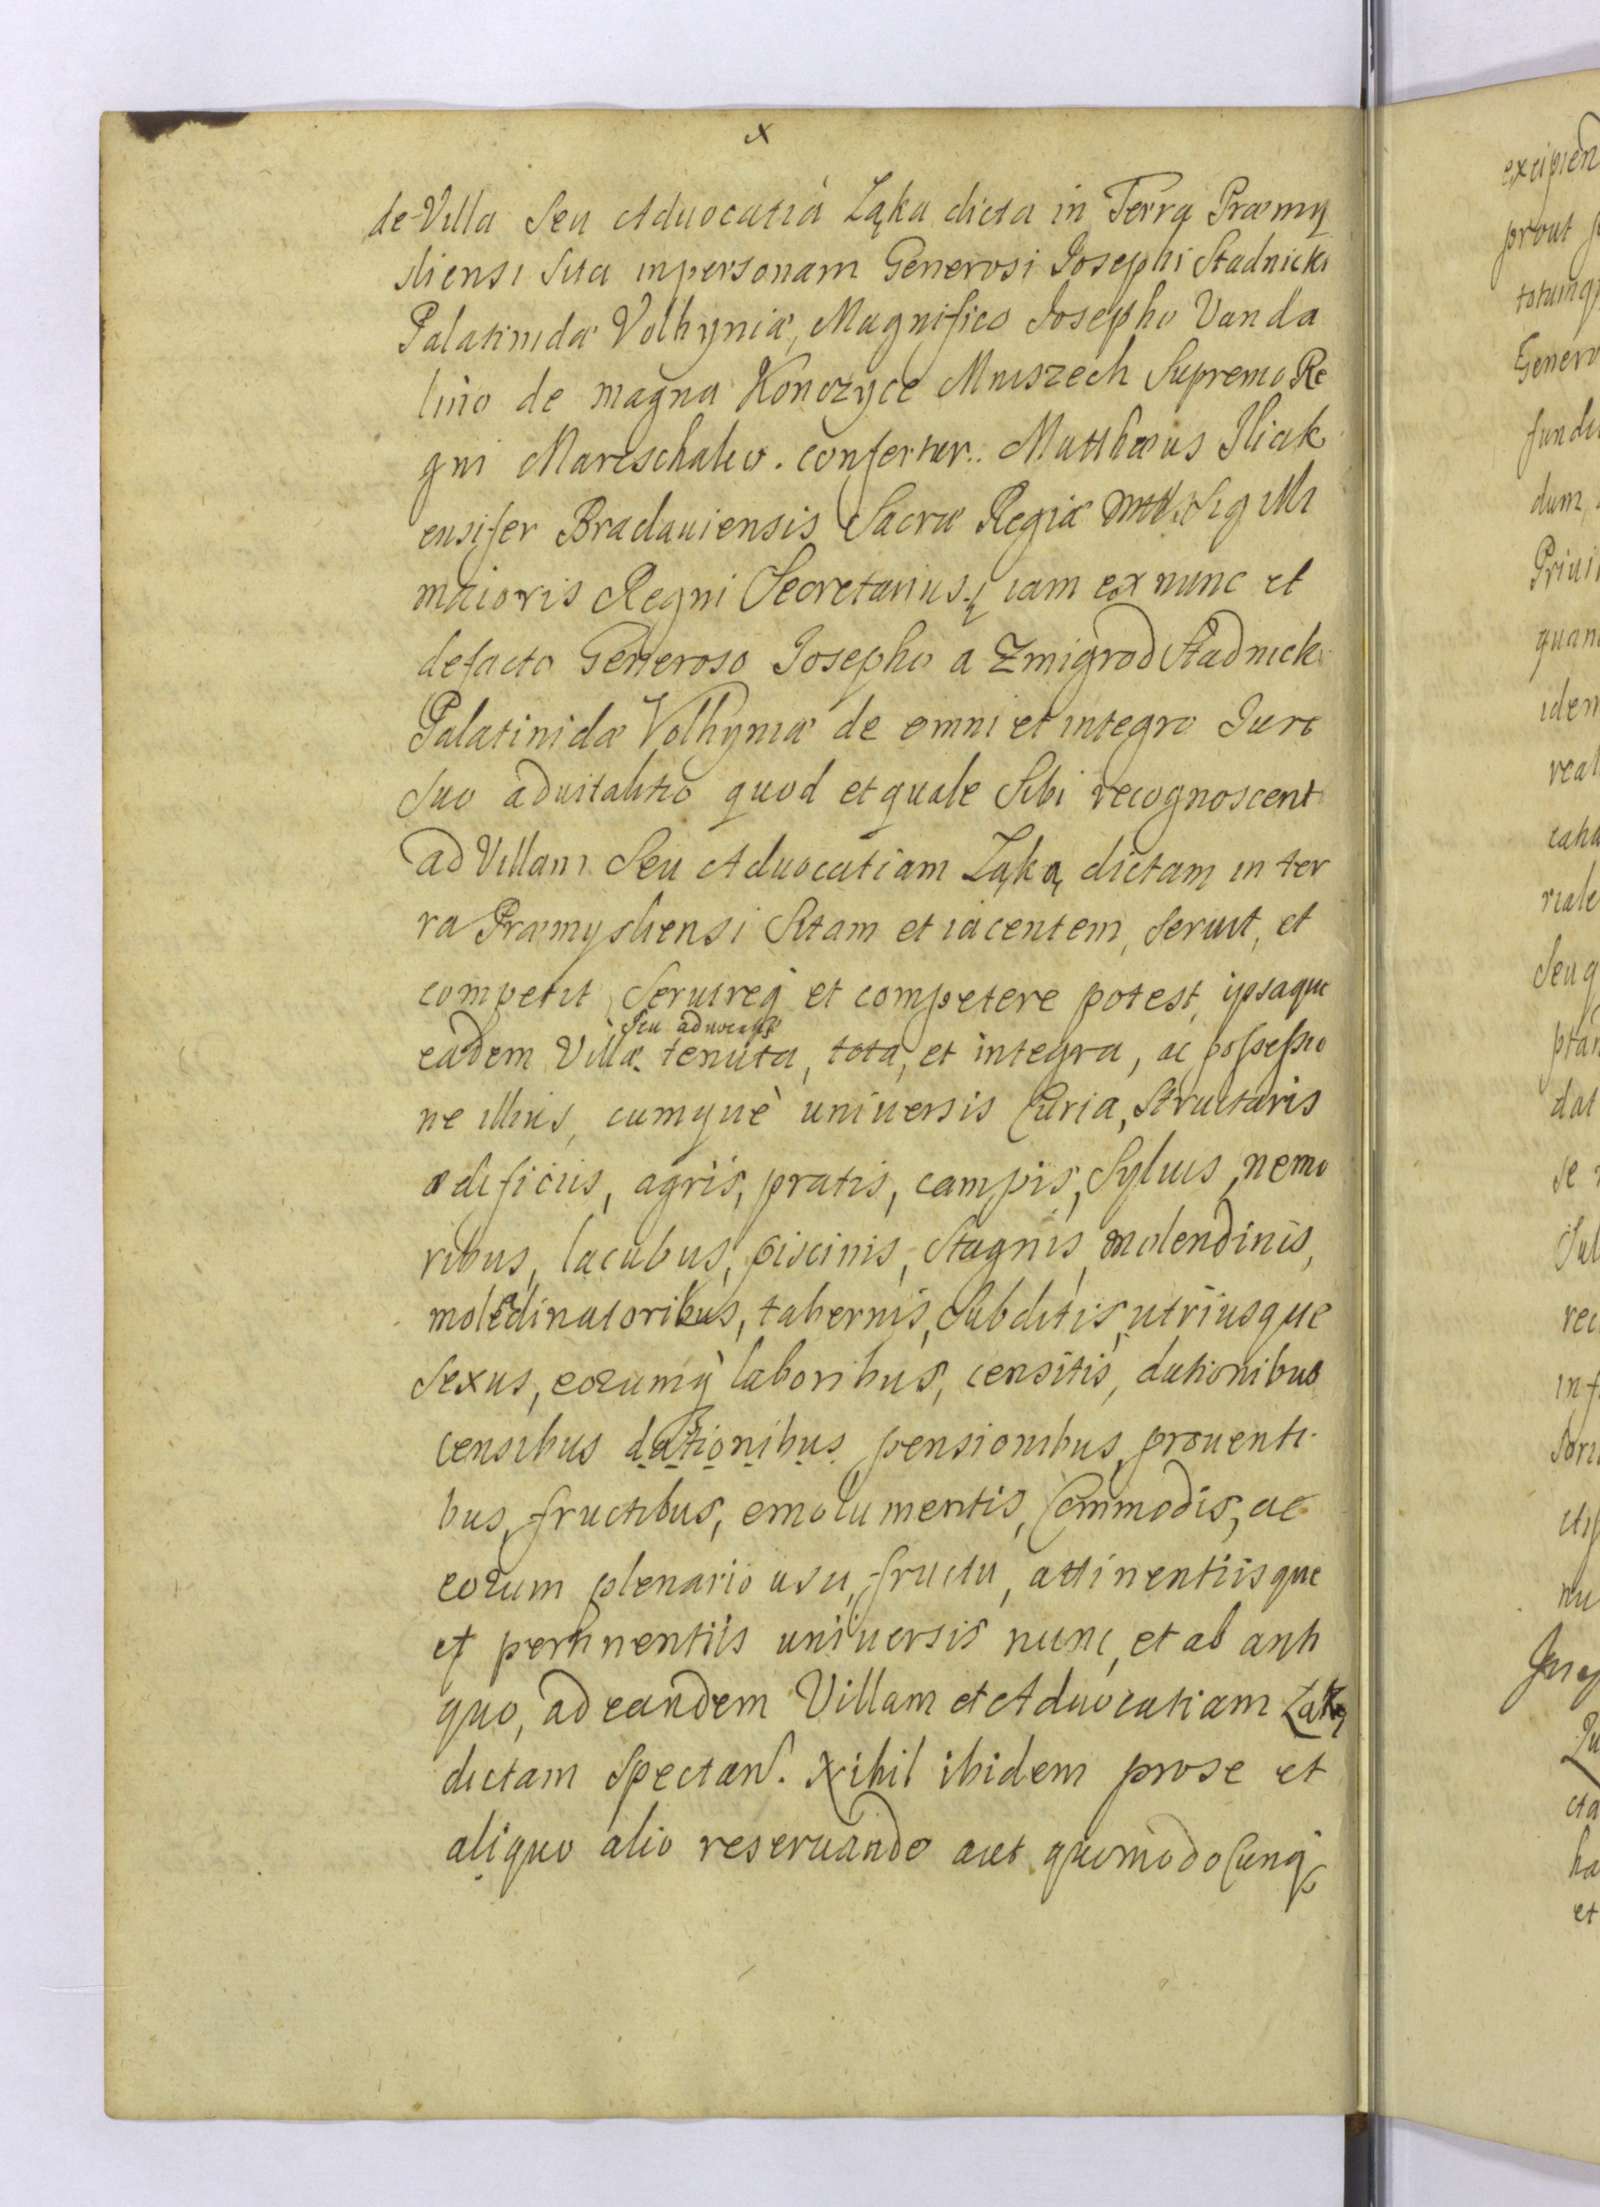 x
de Villa Seu Aduocatia Łąka dicta in Terra Præmy
sliensi Sita inpersonam Generosi Josephi Stadnicki
Palatinidæ Volhyniæ, Magnifico Josepho Vanda
lino de magna Konczyce Mniszech Supremo Re
gni Mareschalco. confertur. Matthæus Iliak
ensifer Braclauiensis Sacræ Regiæ Sig
maioris Regni Secretarius, iam ex nunc et
defacto Generoso Josepho a Zmigrod Stadnicki
Palatinidæ Volhyniæ de omni et integro Jure
Suo aduitalitio quod et quale Sibi recognoscent
ad Villam Seu Aduocatiam Łąka dictam in ter
ra Præmysliensi Sitam et iacentem, Seruit, et
competit, Seruireq et competere potest, ipsaque
Seu aduocatiæ
eadem Villæ tenuta, tota, et integra, ac possessio
ne illius, cumquè universis Curia, Structuris
ædificiis, agris, pratis, campis, Syluis, nemo
ribus, lacubus, piscinis, Stagnis, molendinis,
molēdinatoribus, tabernis, Subditis, utriusque
Sexus, eorumq laboribus, censitis, dationibus
censibus dationibus pensionibus, prouenti-
bus, fructibus, emolumentis, Commodis, ac
eorum plenario usu, fructu, attinentiisque
et pertinentiis universis nunc, et ab anti
quo, ad eandem Villam et Aduocatiam Łąką
dictam Spectan. Nihil ibidem prose et
aliquo alio reseruando aut quomodocunq

excipien
prout
totumq
Genero
fundi
dum,
Priui
quam
idem
real
riale
Seu q
dat
se
Sul
rec
inf
nu
cta
ha
et